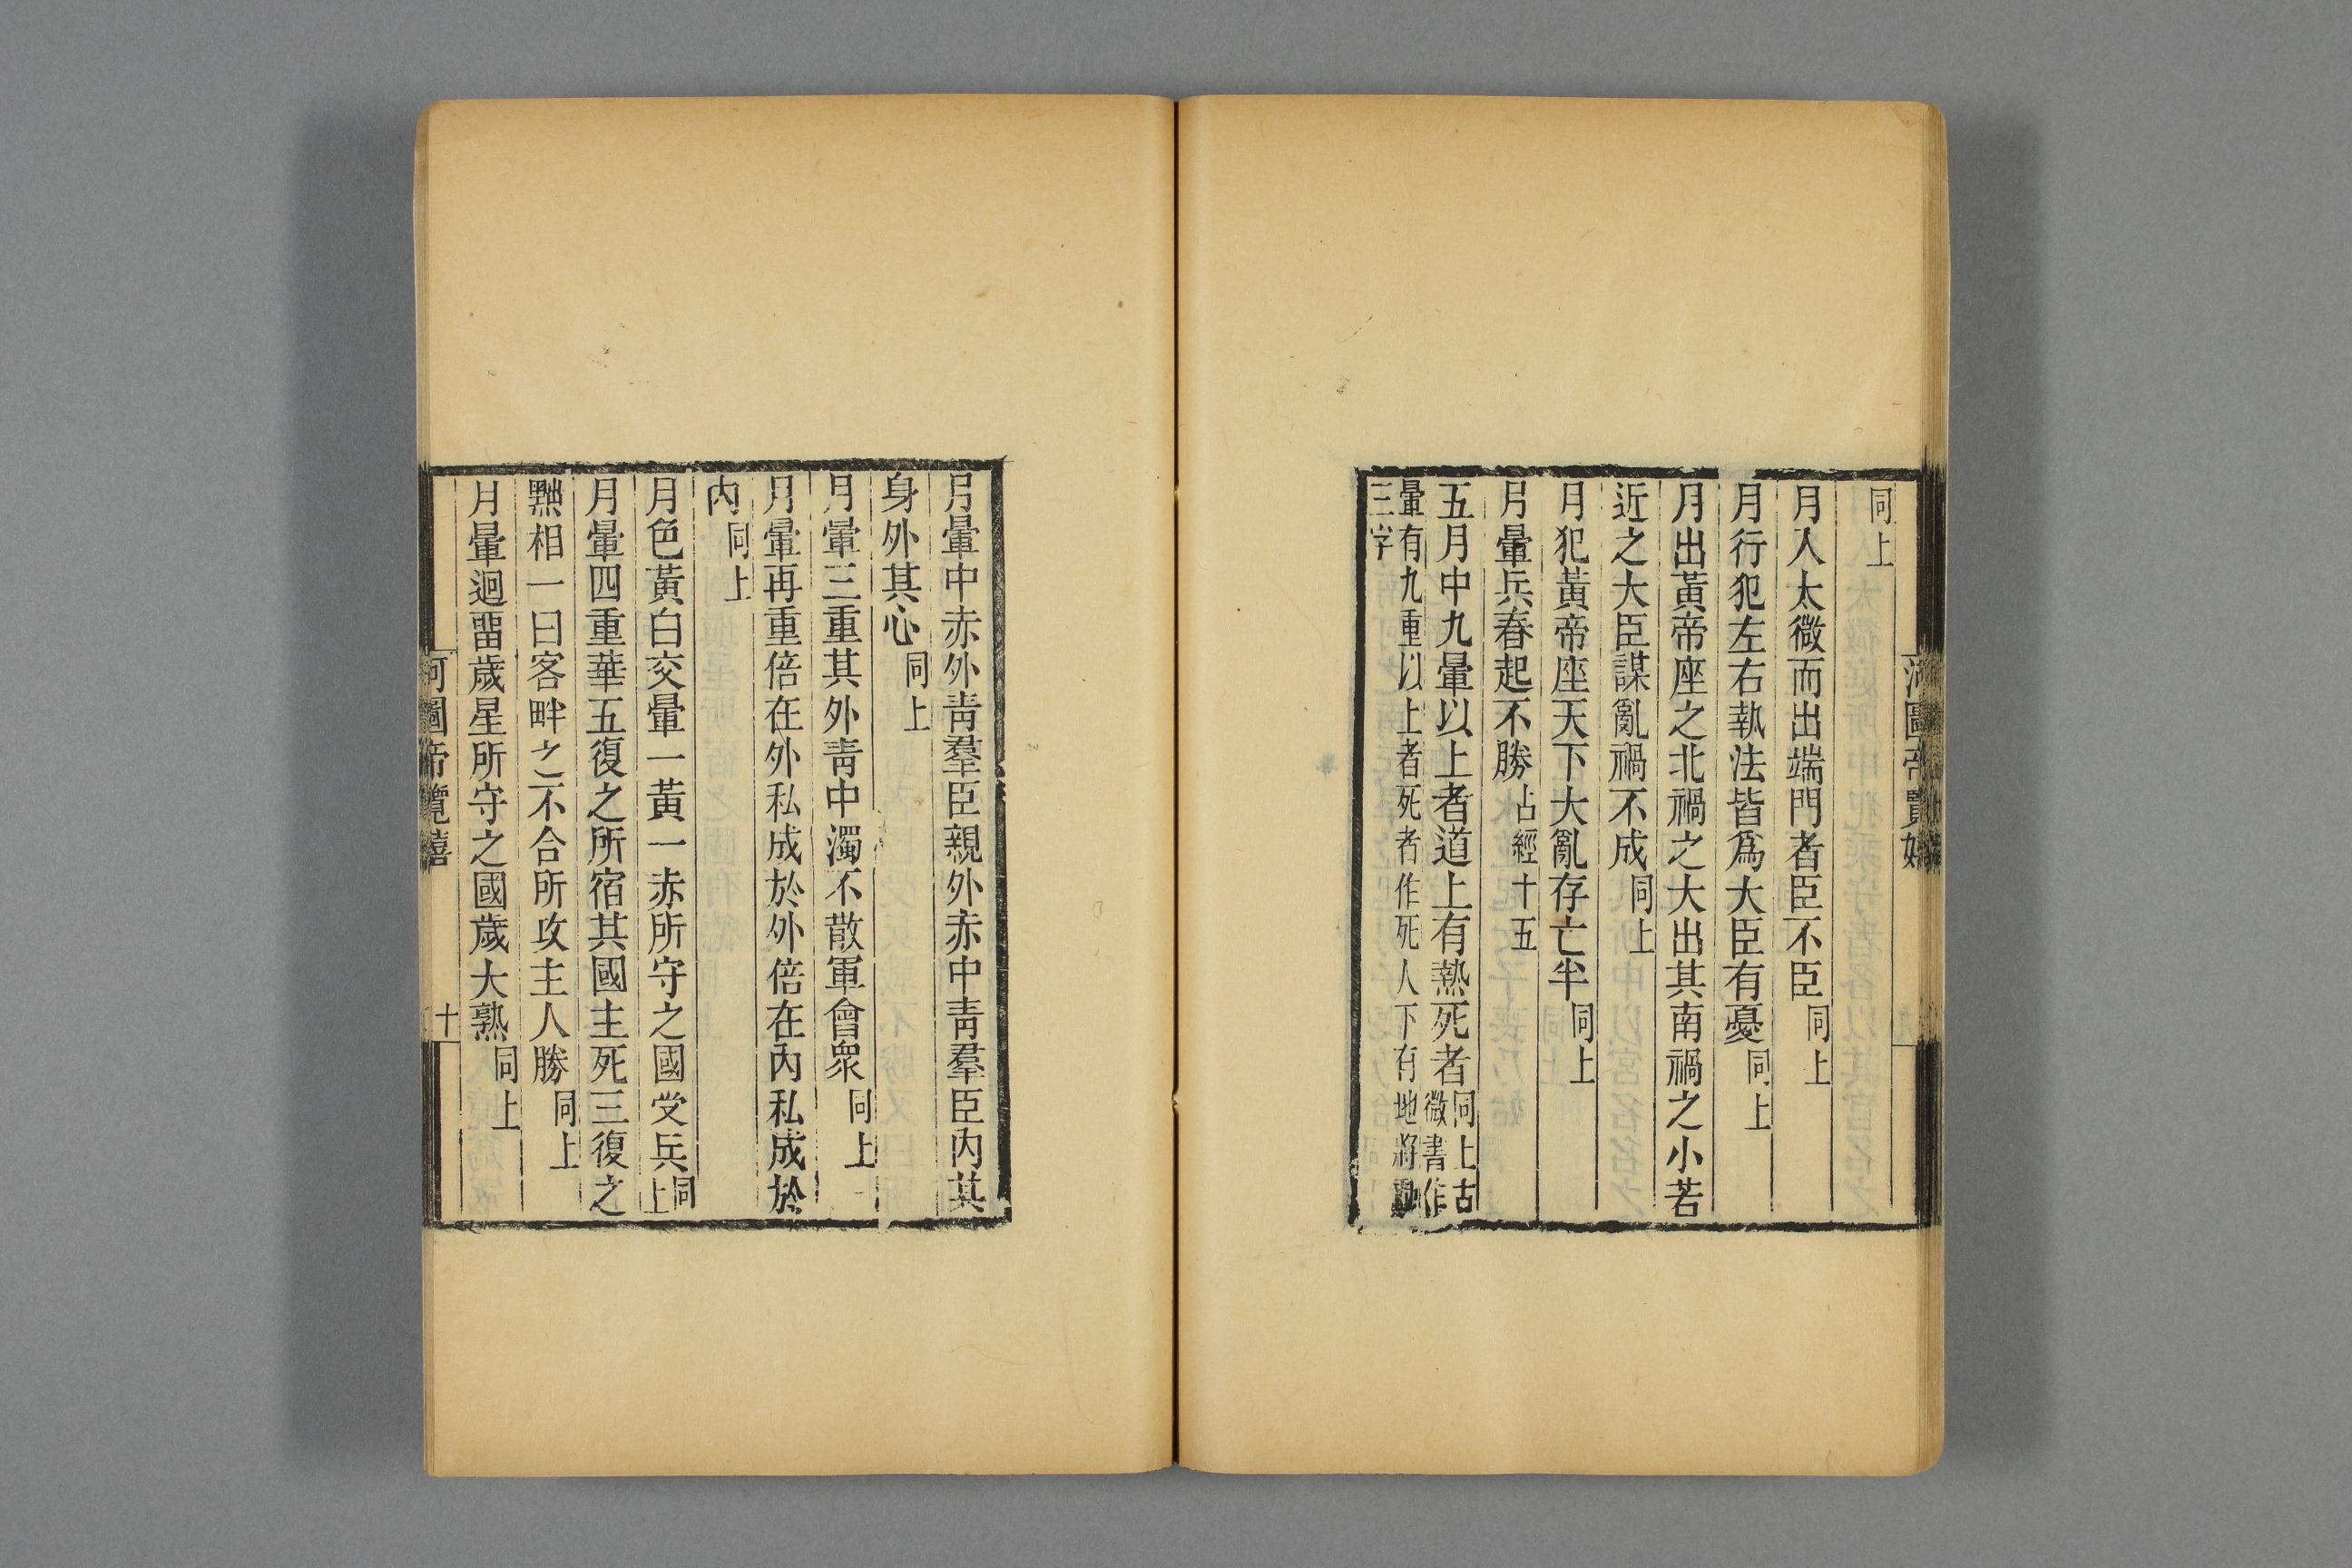 同上
月入太微而出端門者臣不臣同上
月行犯左右執法皆爲大臣有憂同上
月出黃帝座之北禍之大出其南禍之小若
近之大臣謀亂禍不成同上
月犯黃帝座天下大亂存亡半同上
月暈兵春起不勝占經十五
五月中九暈以上者道上有熱死者同上古
微書作
暈有九重以上者死者作死人下有地將動
三字
月暈中赤外靑羣臣親外赤中靑羣臣內其
身外其心同上
月暈三重其外靑中濁不散軍會衆同上
月暈再重倍在外私成於外倍在內私成於
內同上
月色黃白交暈一黃一赤所守之國受兵同
上
月暈四重華五復之所宿其國主死三復之
黑相一曰客畔之不合所攻主人勝同上
月暈迴畱歲星所守之國歲大熟同上
河圖帝覽嬉
十